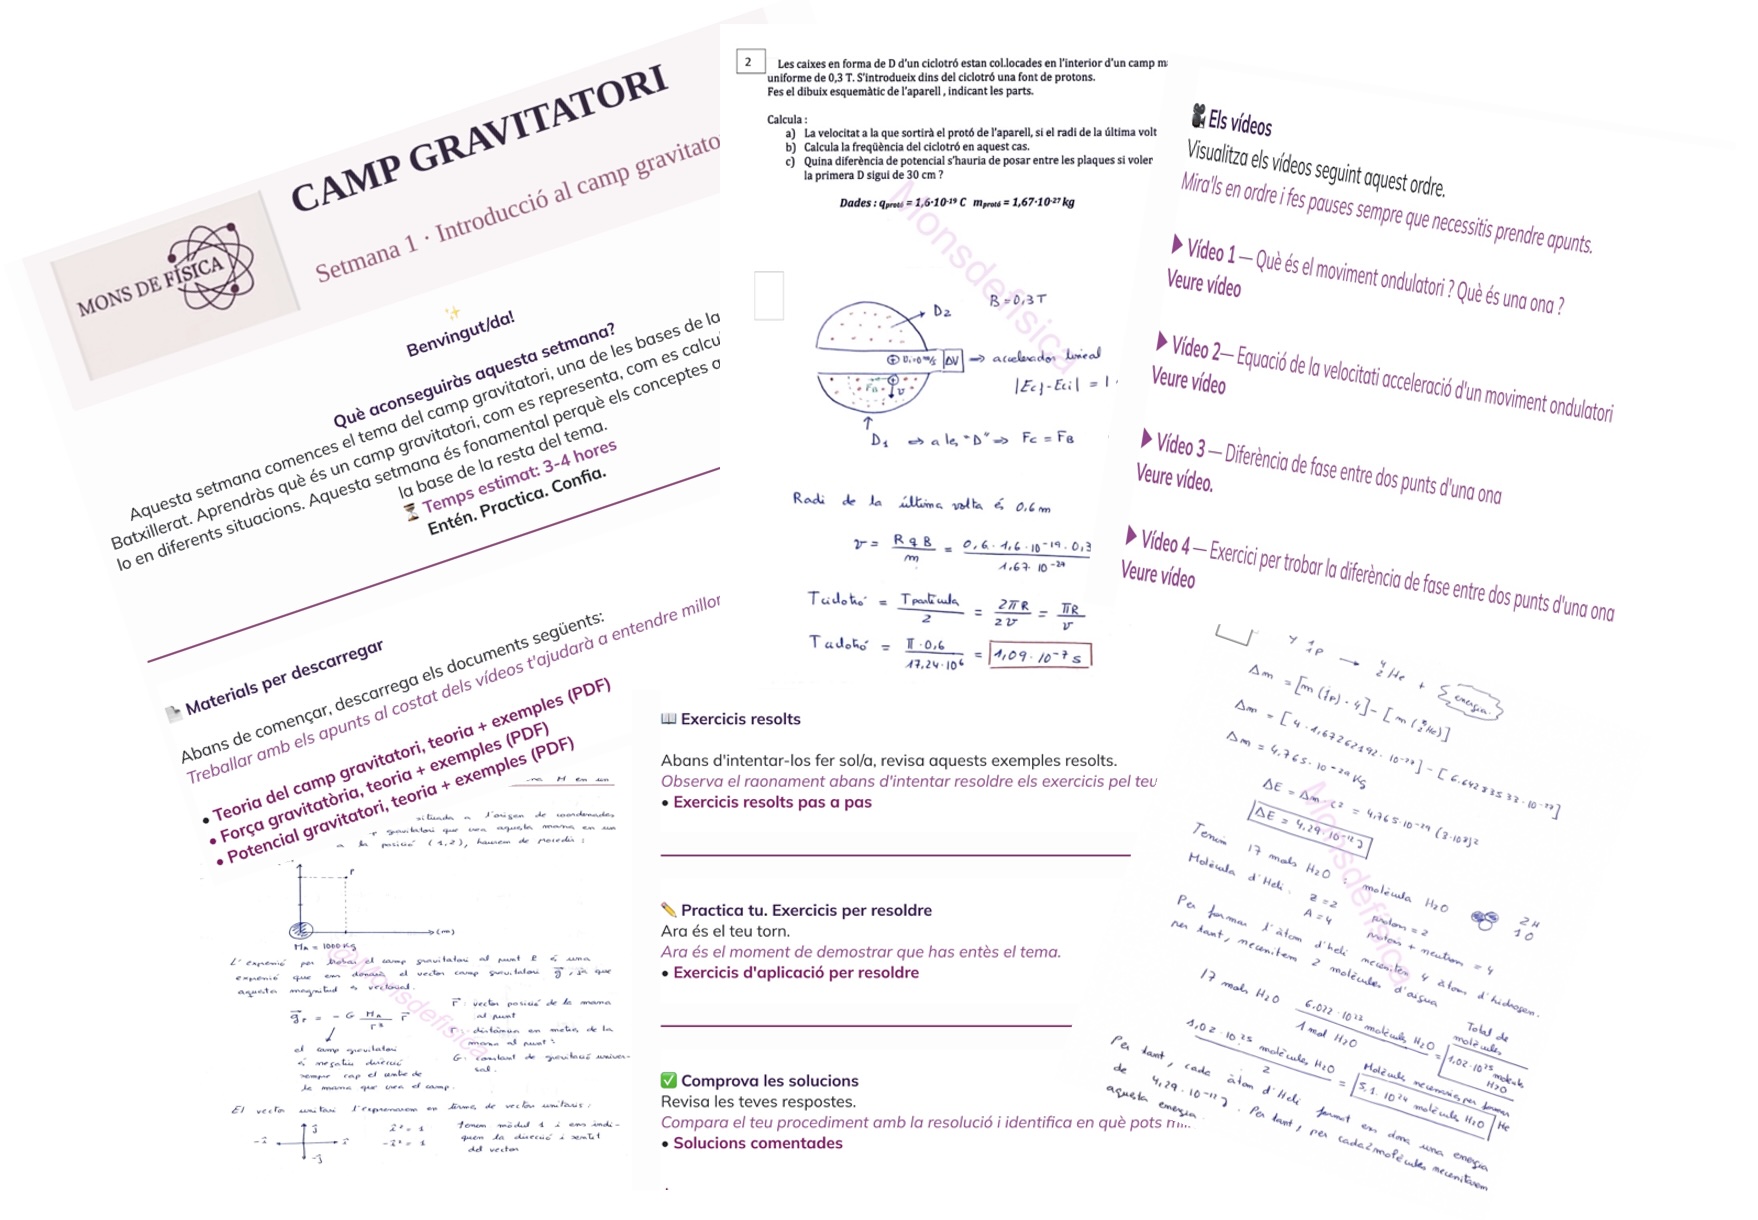 CAMP GRAVITATORI
Setmana 1 · Introducció al camp gravitato
MONS DE FÍSICA
Benvingut/da!
Què aconseguiràs aquesta setmana?
Aquesta setmana comences el tema del camp gravitatori, una de les bases de la
Batxillerat. Aprendràs què és un camp gravitatori, com es representa, com es calcu
lo en diferents situacions. Aquesta setmana és fonamental perquè els conceptes a
la base de la resta del tema.
Temps estimat: 3-4 hores
Entén. Practica. Confia.
Materials per descarregar
Abans de començar, descarrega els documents següents:
Treballar amb els apunts al costat dels vídeos t'ajudarà a entendre millor
• Teoria del camp gravitatori, teoria + exemples (PDF)
• Força gravitatòria, teoria + exemples (PDF)
• Potencial gravitatori, teoria + exemples (PDF)
situada a l'origen de coordenades
gravitatori que crea aquesta massa en un
a la posició (1,2), haurem de procedir:
P
(m)
MA = 1000 Kg
L'expressió per trobar el camp gravitatori al punt P és una
expressió que ens donarà el vector camp gravitatori g⃗, ja que
aquesta magnitud és vectorial.
g⃗r = - G MA/r³ r⃗
r⃗: vector posició de la massa
al punt
r: distància en metres de la
massa al punt
G: constant de gravitació univer-
sal.
el camp gravitatori
és negatiu direcció
sempre cap el centre de
la massa que crea el camp.
El vector unitari l'expressarem en terme de vectors unitaris:
tenen mòdul 1 i ens indi-
quen la direcció i sentit
del vector
@Monsdefisica
2
Les caixes en forma de D d'un ciclotró estan col.locades en l'interior d'un camp m
uniforme de 0,3 T. S'introdueix dins del ciclotró una font de protons.
Fes el dibuix esquemàtic de l'aparell , indicant les parts.
Calcula :
a) La velocitat a la que sortirà el protó de l'aparell, si el radi de la última volt
b) Calcula la freqüència del ciclotró en aquest cas.
c) Quina diferència de potencial s'hauria de posar entre les plaques si voler
la primera D sigui de 30 cm ?
Dades : qprotó = 1,6·10-19 C mprotó = 1,67·10-27 kg
Monsdefisica
B = 0,3 T
D2
ΔV ⇒ accelerador lineal
|Ecf - Eci| = 1
D1 ⇒ a les "D" ⇒ Fc = FB
Radi de la última volta és 0,6 m
v = R q B / m = 0,6 · 1,6 · 10⁻¹⁹ · 0,3 / 1,67 · 10⁻²⁷
Tciclotró = Tpartícula / 2 = 2πR / 2v = πR / v
Tciclotró = π · 0,6 / 17,24 · 10⁶ = 1,09 · 10⁻⁷ s
Els vídeos
Visualitza els vídeos seguint aquest ordre.
Mira'ls en ordre i fes pauses sempre que necessitis prendre apunts.
Vídeo 1 — Què és el moviment ondulatori ? Què és una ona ?
Veure vídeo
Vídeo 2— Equació de la velocitati acceleració d'un moviment ondulatori
Veure vídeo
Vídeo 3 — Diferència de fase entre dos punts d'una ona
Veure vídeo.
Vídeo 4 — Exercici per trobar la diferència de fase entre dos punts d'una ona
Veure vídeo
Exercicis resolts
Abans d'intentar-los fer sol/a, revisa aquests exemples resolts.
Observa el raonament abans d'intentar resoldre els exercicis pel teu
• Exercicis resolts pas a pas
Practica tu. Exercicis per resoldre
Ara és el teu torn.
Ara és el moment de demostrar que has entès el tema.
• Exercicis d'aplicació per resoldre
Comprova les solucions
Revisa les teves respostes.
Compara el teu procediment amb la resolució i identifica en què pots
• Solucions comentades
4 ¹₁P → ⁴₂He + energia
Δm = [m (¹₁p) · 4] - [m (⁴₂He)]
Δm = [4 · 1,67262192 · 10⁻²⁷] - [6.64233532 · 10⁻²⁷]
Δm = 4,765 · 10⁻²⁹ Kg
ΔE = Δm c² = 4,765 · 10⁻²⁹ (3·10⁸)²
ΔE = 4,29 · 10⁻¹² J
Tenim 17 mols H₂O : molècula H₂O 2H 1O
Molècula d'Heli. Z=2 protons = 2
A=4 protons + neutrons = 4
Per formar l'àtom d'heli necessitem 4 àtoms d'hidrogen.
per tant, necessitem 2 molècules d'aigua
17 mols H₂O 6,022 · 10²³ molècules H₂O / 1 mol H₂O = 1,02 · 10²⁵ molècules H₂O
Total de molècules
1,02 · 10²⁵ molècules H₂O / 2 = 5,1 · 10²⁴ molècules H₂O
Molècules necessàries per formar He
Per tant, cada àtom d'Heli format ens dona una energia
de 4,29 · 10⁻¹² J. Per tant, per cada 2 molècules necessitarem
aquesta energia.
Monsdefisica